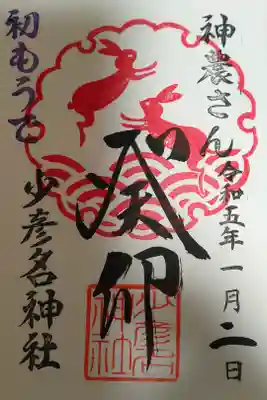 神農さん 令和五年一月二日
癸卯
少彦名
神社
初もうで
少彦名神社